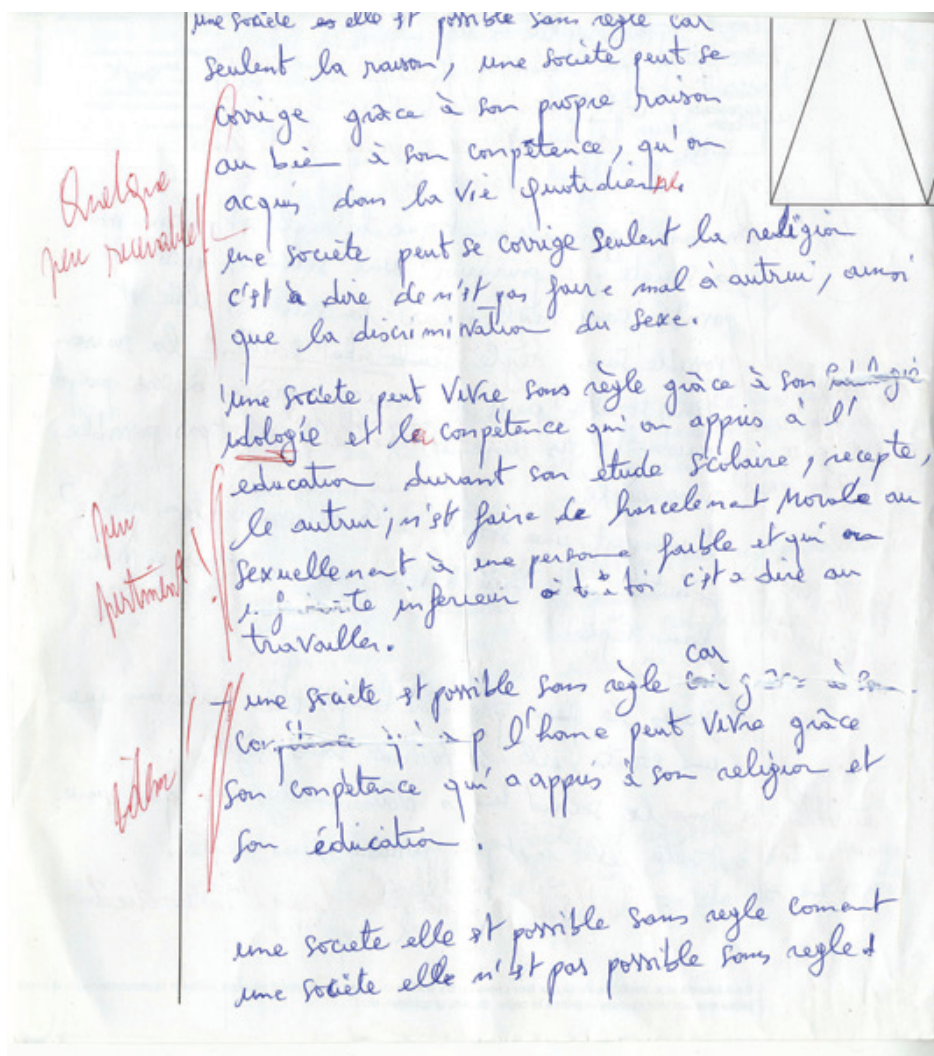 une société es elle st possible sans règle car
seulent la raison, une société peut se
corrige grâce à son propre raison
au bien à son compétence, qu'on
acquis dans la vie quotidienne.
une société peut se corrige seulent la religion
c'st à dire de n'st pas faire mal à autrui, ainsi
que la discrimination du sexe.
Quelque
peu recevable
une société peut vivre sans règle grâce à son
idologie et la compétance qui on appris à l'
education durant son étude scolaire, recepte,
le autrui, n'st faire de harcelement morale au
sexuellement à une personne faible et qui
inferieur à toi c'st a dire au
travailler.
peu
pertinent
- une société st possible sans règle car
l'home peut vivre grâce
son compétance qu'a appris à son religion et
son éducation.
idem
une société elle st possible sans regle coment
une société elle n'st pas possible sans regle.